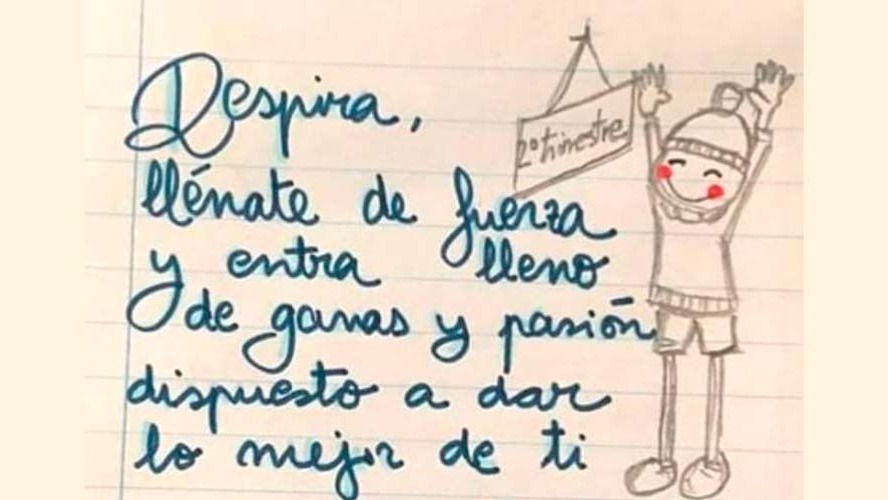 Respira,
2º trimestre
llénate de fuerza
y entra lleno
de ganas y pasión
dispuesto a dar
lo mejor de ti